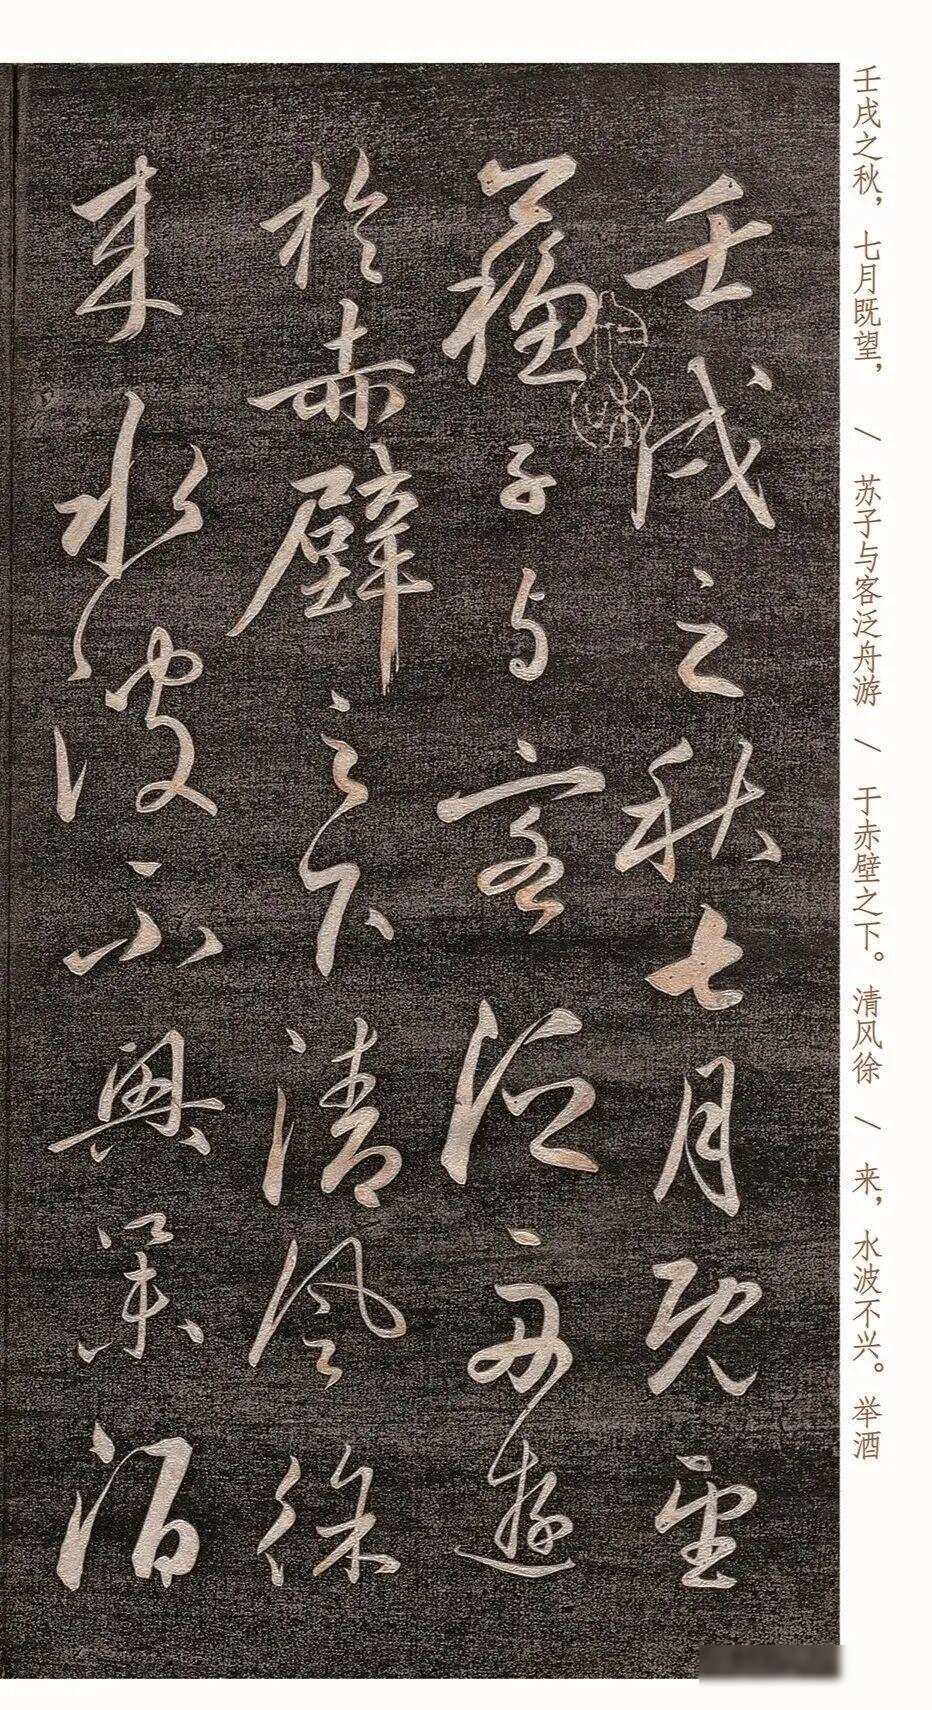 壬戌之秋七月既望
蘇子与客泛舟遊
於赤壁之下清風徐
来水波不興舉酒
壬戌之秋，七月既望， / 苏子与客泛舟游 / 于赤壁之下。清风徐 / 来，水波不兴。举酒